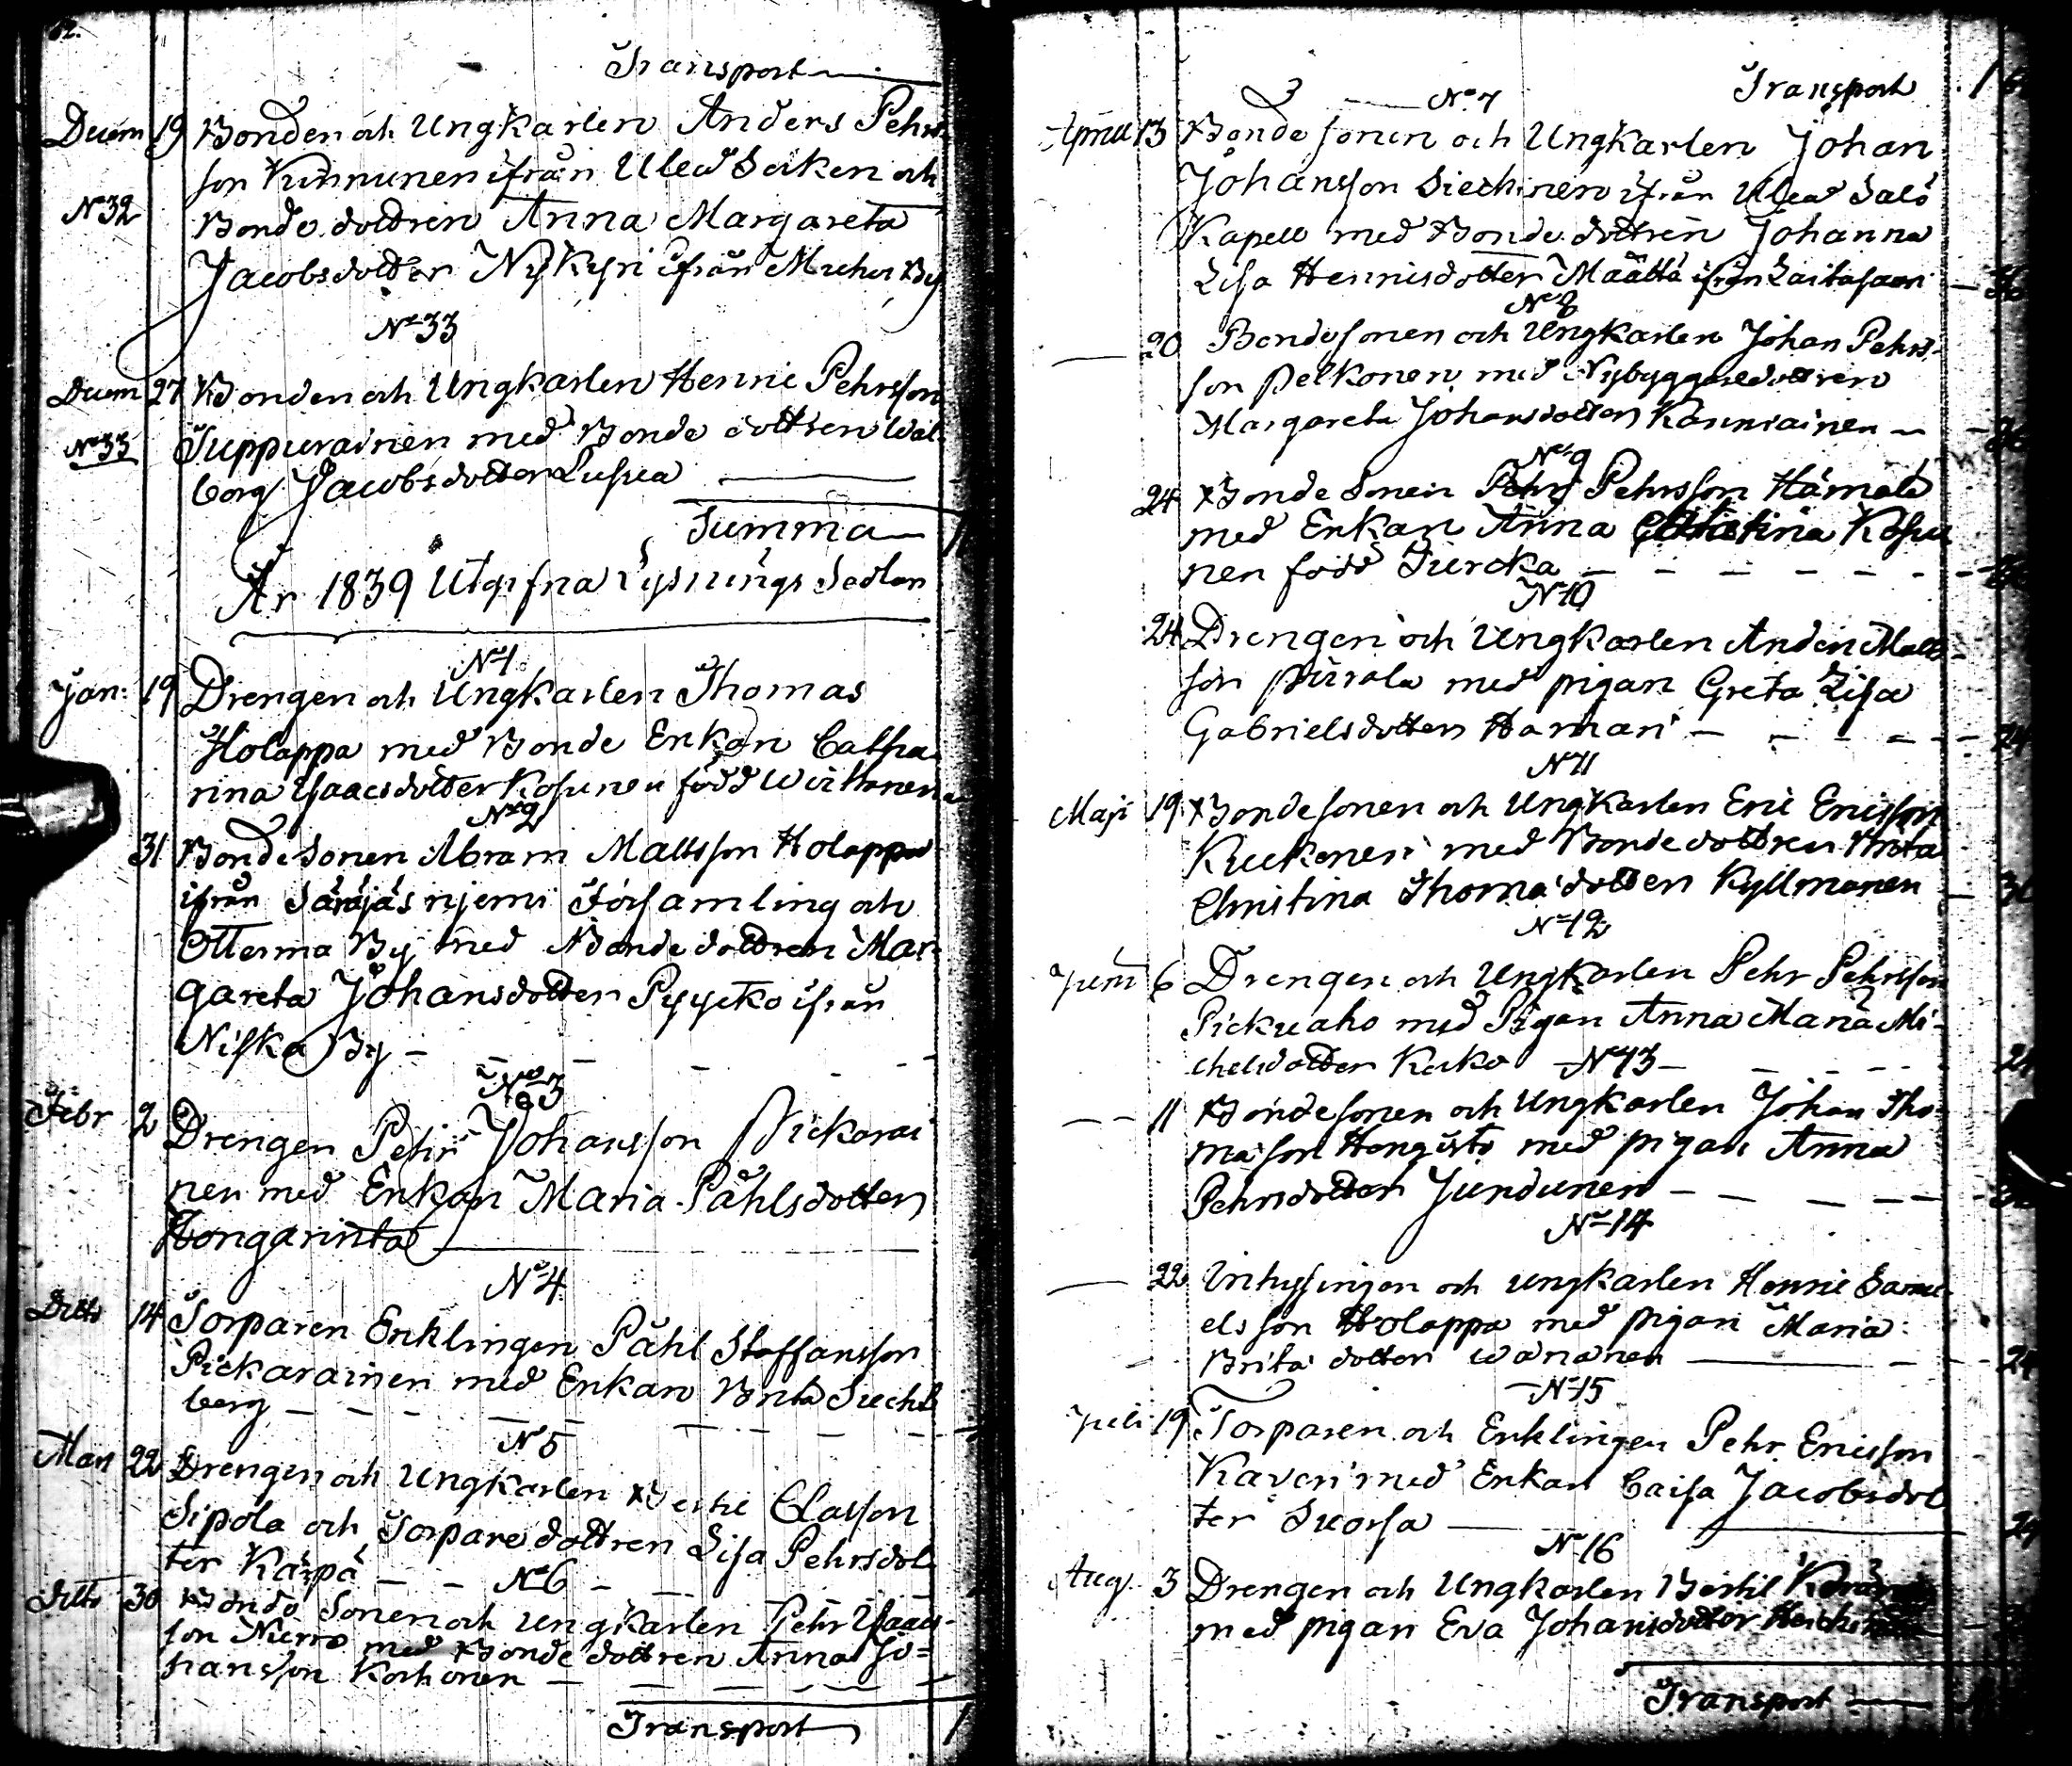 Transport
Decem 19 Bonden och Ungkarlen Anders Pehrs-
son Kinnunen ifrån Uleå Socken och
N° 32 Bonde dottren Anna Margareta
Jacobsdotter Nykyri ifrån Muhos By
N° 33
Decem 27 Bonden och Ungkarlen Henric Pehrsson
N° 33 Juppurainen med Bonde dottren Wal-
borg Jacobsdotter
Summa
År 1839 Utgifna Lysnings Sedlar
N° 1
Jan: 19 Drengen och Ungkarlen Thomas
Holappa med Bonde Enkan Catha-
rina Isaacsdotter Kosunen född Wirtanen
N° 2
31 Bonde Sonen Abram Mattsson Holappa
ifrån Säräjäsnjemi Församling och
Otterma By med Bonde dottren Mar-
gareta Johansdotter Pyyckö ifrån
Niska By
N° 3
Febr 2 Drengen Pehr Johansson Pickarai
nen med Enkan Maria Påhlsdotter
Hongarinta
N° 4
Ditto 14 Torparen Enklingen Påhl Staffansson
Pickarainen med Enkan Brita
berg
N° 5
Mars 22 Drengen och Ungkarlen Classon
Sipola och Torpare dottren Lisa Pehrsdot-
ter Kärpä
N° 6
Ditto 30 Bonde Sonen och Ungkarlen Pehr Isaacs-
son med Bonde dottren Anna Jo=
hansson Korhonen
Transport 1
Transport
N° 7
April 13 Bonde sonen och Ungkarlen Johan
Johansson Siechinen ifrån Uleå Salo
Kapell med Bonde dottren Johanna
Lisa Henricsdotter Määttä ifrån Laitasaari
N° 8
20 Bondesonen och Ungkarlen Johan Pehrs-
son Pelkonen med Nybyggaredottren
Margareta Johansdotter Kanniainen
N° 9
24 Bonde Sonen Pehr Pehrsson Hämälä
med Enkan Anna Christina Kosu
nen född Tiercka
N° 10
24 Drengen och Ungkarlen Anders Matts-
son Piirala med pigan Greta Lisa
Gabrielsdotter Hamari 24
N° 11
Maji 19 Bondesonen och Ungkarlen Eric Ericsson
Kuckonen med Bonde dottren Brita
Christina Thomæ dotter Kyllmänen
N° 12
Junii 6 Drengen och Ungkarlen Pehr Pehrsson
Pickuaho med Pigan Anna Maria Mi-
chelsdotter Keko
N° 13
11 Bondesonen och Ungkarlen Johan Tho-
mæson Hongisto med pigan Anna
Pehrsdotter Jundunen
N° 14
22 Inhysingen och ungkarlen Henric Samu-
elsson Holappa med pigan Maria
Brita dotter Wänänen 24
N° 15
Juli 19 Torparen och Enklingen Pehr Ericsson
Karen med Enkan Caisa Jacobsdot
ter Suorsa 24
N° 16
Aug. 3 Drengen och Ungkarlen Bertil
med pigan Eva Johansdotter
Transport